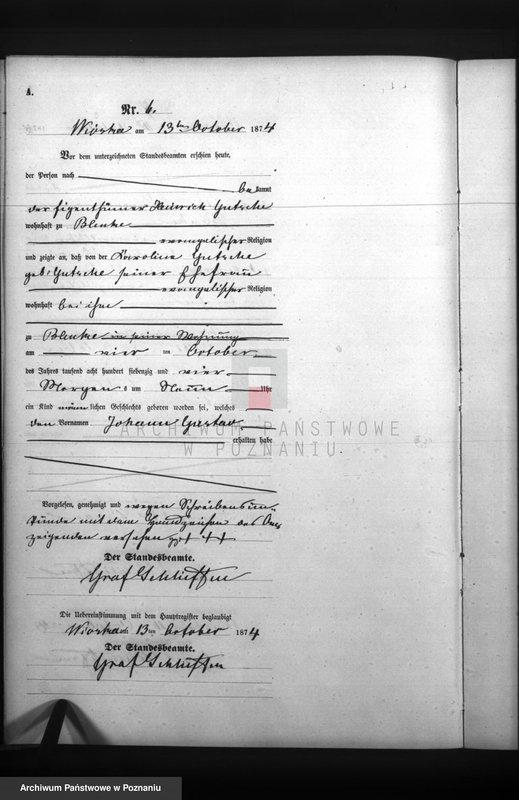 A.
Nr. 6.
Wioska am 13ten October 1874
Vor dem unterzeichneten Standesbeamten erschien heute,
der Person nach
bekannt
der Eigenthümer Heinrich Gutsche
wohnhaft zu Blenke
evangelischer Religion
und zeigte an, daß von der Karoline Gutsche
geb: Gutsche seiner Ehefrau
evangelischer Religion
wohnhaft bei ihm
zu Blenke in seiner Wohnung
am vier ten October
des Jahres tausend acht hundert siebenzig und vier
Morgens um Neun Uhr
ein Kind männlichen Geschlechts geboren worden sei, welches
den Vornamen Johann Gustav
erhalten habe
Vorgelesen, genehmigt und wegen Schreibensun-
kunde mit dem Handzeichen des An-
zeigenden versehen +++
Der Standesbeamte.
Graf Schlieffen
Die Uebereinstimmung mit dem Hauptregister beglaubigt
Wioska am 13ten October 1874
Der Standesbeamte.
Graf Schlieffen
ARCHIWUM PAŃSTWOWE
W POZNANIU
Archiwum Państwowe w Poznaniu